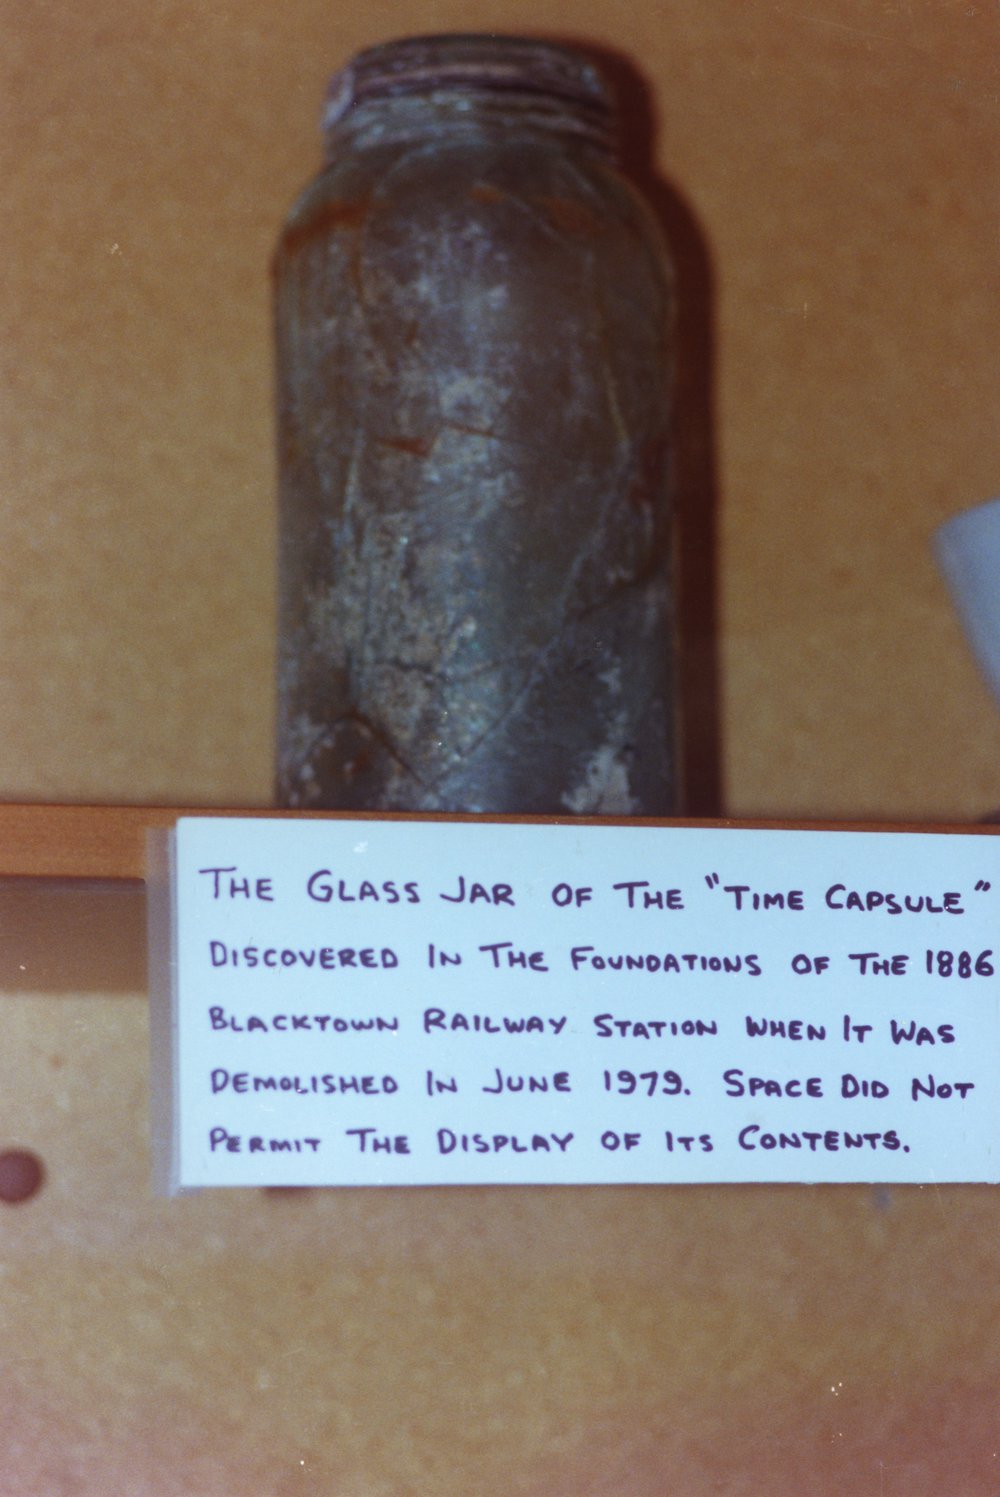 THE GLASS JAR OF THE "TIME CAPSULE"
DISCOVERED IN THE FOUNDATIONS OF THE 1886
BLACKTOWN RAILWAY STATION WHEN IT WAS
DEMOLISHED IN JUNE 1979. SPACE DID NOT
PERMIT THE DISPLAY OF ITS CONTENTS.